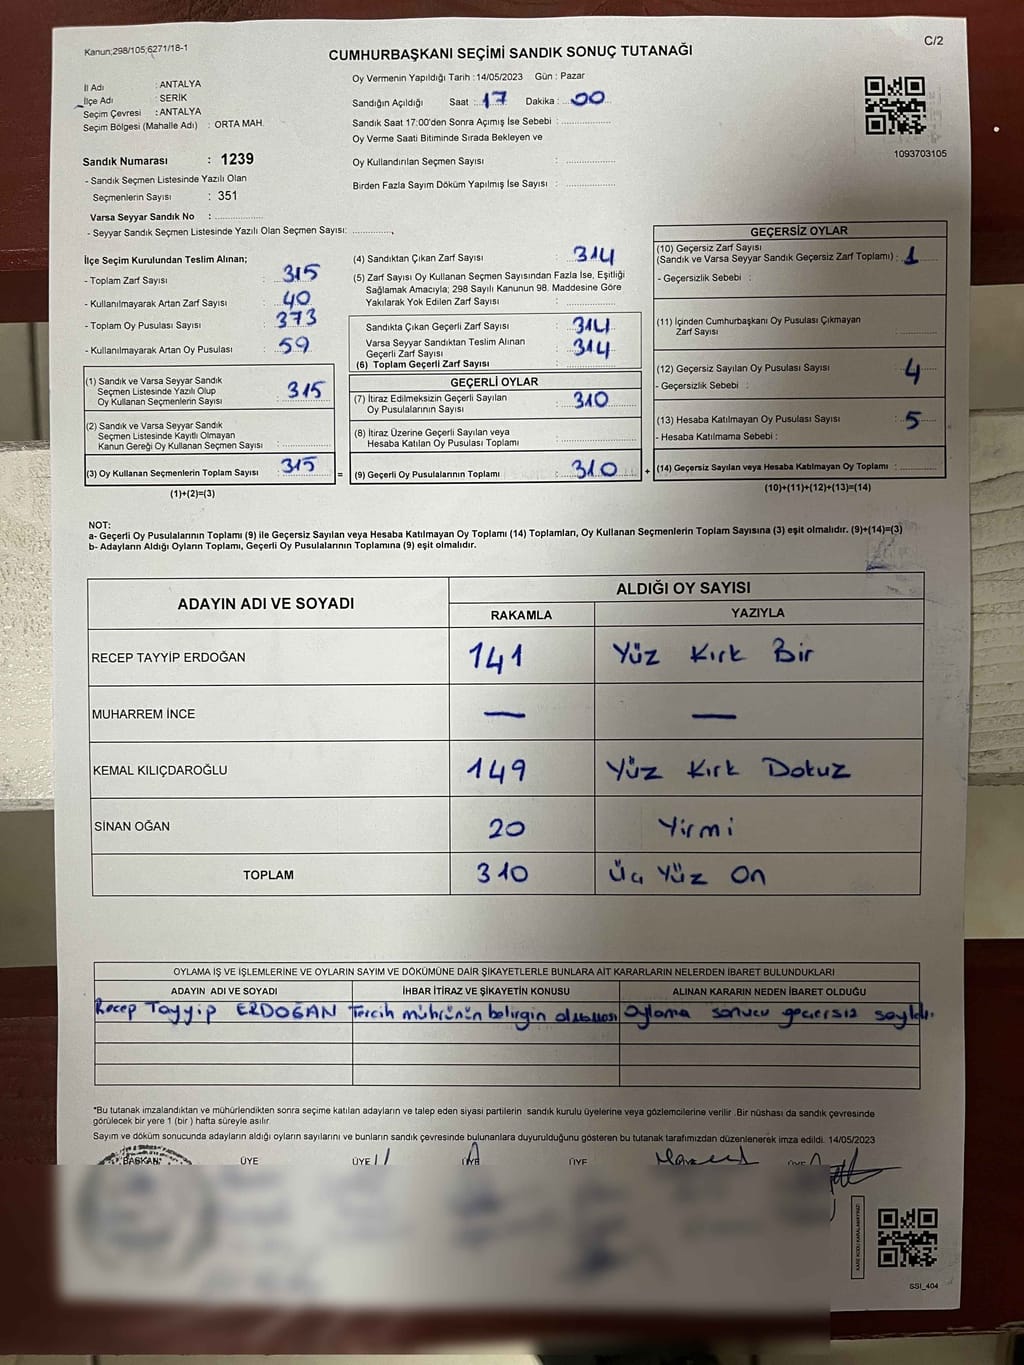 Kanun;298/105;6271/18-1
C/2
CUMHURBAŞKANI SEÇİMİ SANDIK SONUÇ TUTANAĞI
İl Adı : ANTALYA
İlçe Adı : SERİK
Seçim Çevresi : ANTALYA
Seçim Bölgesi (Mahalle Adı) : ORTA MAH.
Sandık Numarası : 1239
- Sandık Seçmen Listesinde Yazılı Olan
Seçmenlerin Sayısı : 351
Varsa Seyyar Sandık No : ................
- Seyyar Sandık Seçmen Listesinde Yazılı Olan Seçmen Sayısı: ..............
Oy Vermenin Yapıldığı Tarih : 14/05/2023 Gün : Pazar
Sandığın Açıldığı Saat : 17 Dakika : 00
Sandık Saat 17:00'den Sonra Açımış İse Sebebi : ................
Oy Verme Saati Bitiminde Sırada Bekleyen ve
Oy Kullandırılan Seçmen Sayısı : ................
Birden Fazla Sayım Döküm Yapılmış İse Sayısı : ................
1093703105
İlçe Seçim Kurulundan Teslim Alınan;
- Toplam Zarf Sayısı : 315
- Kullanılmayarak Artan Zarf Sayısı : 40
- Toplam Oy Pusulası Sayısı : 373
- Kullanılmayarak Artan Oy Pusulası : 59
(1) Sandık ve Varsa Seyyar Sandık
Seçmen Listesinde Yazılı Olup
Oy Kullanan Seçmenlerin Sayısı : 315
(2) Sandık ve Varsa Seyyar Sandık
Seçmen Listesinde Kayıtlı Olmayan
Kanun Gereği Oy Kullanan Seçmen Sayısı : ................
(3) Oy Kullanan Seçmenlerin Toplam Sayısı : 315
(1)+(2)=(3)
(4) Sandıktan Çıkan Zarf Sayısı : 314
(5) Zarf Sayısı Oy Kullanan Seçmen Sayısından Fazla İse, Eşitliği
Sağlamak Amacıyla; 298 Sayılı Kanunun 98. Maddesine Göre
Yakılarak Yok Edilen Zarf Sayısı : ................
Sandıkta Çıkan Geçerli Zarf Sayısı : 314
Varsa Seyyar Sandıktan Teslim Alınan
Geçerli Zarf Sayısı : 314
(6) Toplam Geçerli Zarf Sayısı : ................
GEÇERLİ OYLAR
(7) İtiraz Edilmeksizin Geçerli Sayılan
Oy Pusulalarının Sayısı : 310
(8) İtiraz Üzerine Geçerli Sayılan veya
Hesaba Katılan Oy Pusulası Toplamı : ................
= (9) Geçerli Oy Pusulalarının Toplamı : 310 +
GEÇERSİZ OYLAR
(10) Geçersiz Zarf Sayısı
(Sandık ve Varsa Seyyar Sandık Geçersiz Zarf Toplamı) : 1
- Geçersizlik Sebebi :
(11) İçinden Cumhurbaşkanı Oy Pusulası Çıkmayan
Zarf Sayısı : ................
(12) Geçersiz Sayılan Oy Pusulası Sayısı : 4
- Geçersizlik Sebebi :
(13) Hesaba Katılmayan Oy Pusulası Sayısı : 5
- Hesaba Katılmama Sebebi :
(14) Geçersiz Sayılan veya Hesaba Katılmayan Oy Toplamı : ................
(10)+(11)+(12)+(13)=(14)
NOT:
a- Geçerli Oy Pusulalarının Toplamı (9) ile Geçersiz Sayılan veya Hesaba Katılmayan Oy Toplamı (14) Toplamları, Oy Kullanan Seçmenlerin Toplam Sayısına (3) eşit olmalıdır. (9)+(14)=(3)
b- Adayların Aldığı Oyların Toplamı, Geçerli Oy Pusulalarının Toplamına (9) eşit olmalıdır.
ADAYIN ADI VE SOYADI ALDIĞI OY SAYISI
RAKAMLA YAZIYLA
RECEP TAYYİP ERDOĞAN 141 Yüz Kırk Bir
MUHARREM İNCE — —
KEMAL KILIÇDAROĞLU 149 Yüz Kırk Dokuz
SİNAN OĞAN 20 Yirmi
TOPLAM 310 Üç Yüz On
OYLAMA İŞ VE İŞLEMLERİNE VE OYLARIN SAYIM VE DÖKÜMÜNE DAİR ŞİKAYETLERLE BUNLARA AİT KARARLARIN NELERDEN İBARET BULUNDUKLARI
ADAYIN ADI VE SOYADI İHBAR İTİRAZ VE ŞİKAYETİN KONUSU ALINAN KARARIN NEDEN İBARET OLDUĞU
Recep Tayyip ERDOĞAN Tercih mührünün belirgin Oylama sonucu geçersiz sayıldı.
*Bu tutanak imzalandıktan ve mühürlendikten sonra seçime katılan adayların ve talep eden siyasi partilerin sandık kurulu üyelerine veya gözlemcilerine verilir .Bir nüshası da sandık çevresinde
görülecek bir yere 1 (bir ) hafta süreyle asılır
Sayım ve döküm sonucunda adayların aldığı oyların sayılarını ve bunların sandık çevresinde bulunanlara duyurulduğunu gösteren bu tutanak tarafımızdan düzenlenerek imza edildi. 14/05/2023
BAŞKAN ÜYE ÜYE ÜYE ÜYE ÜYE
KARE KODU KARALAMAYINIZ!
SSI_404